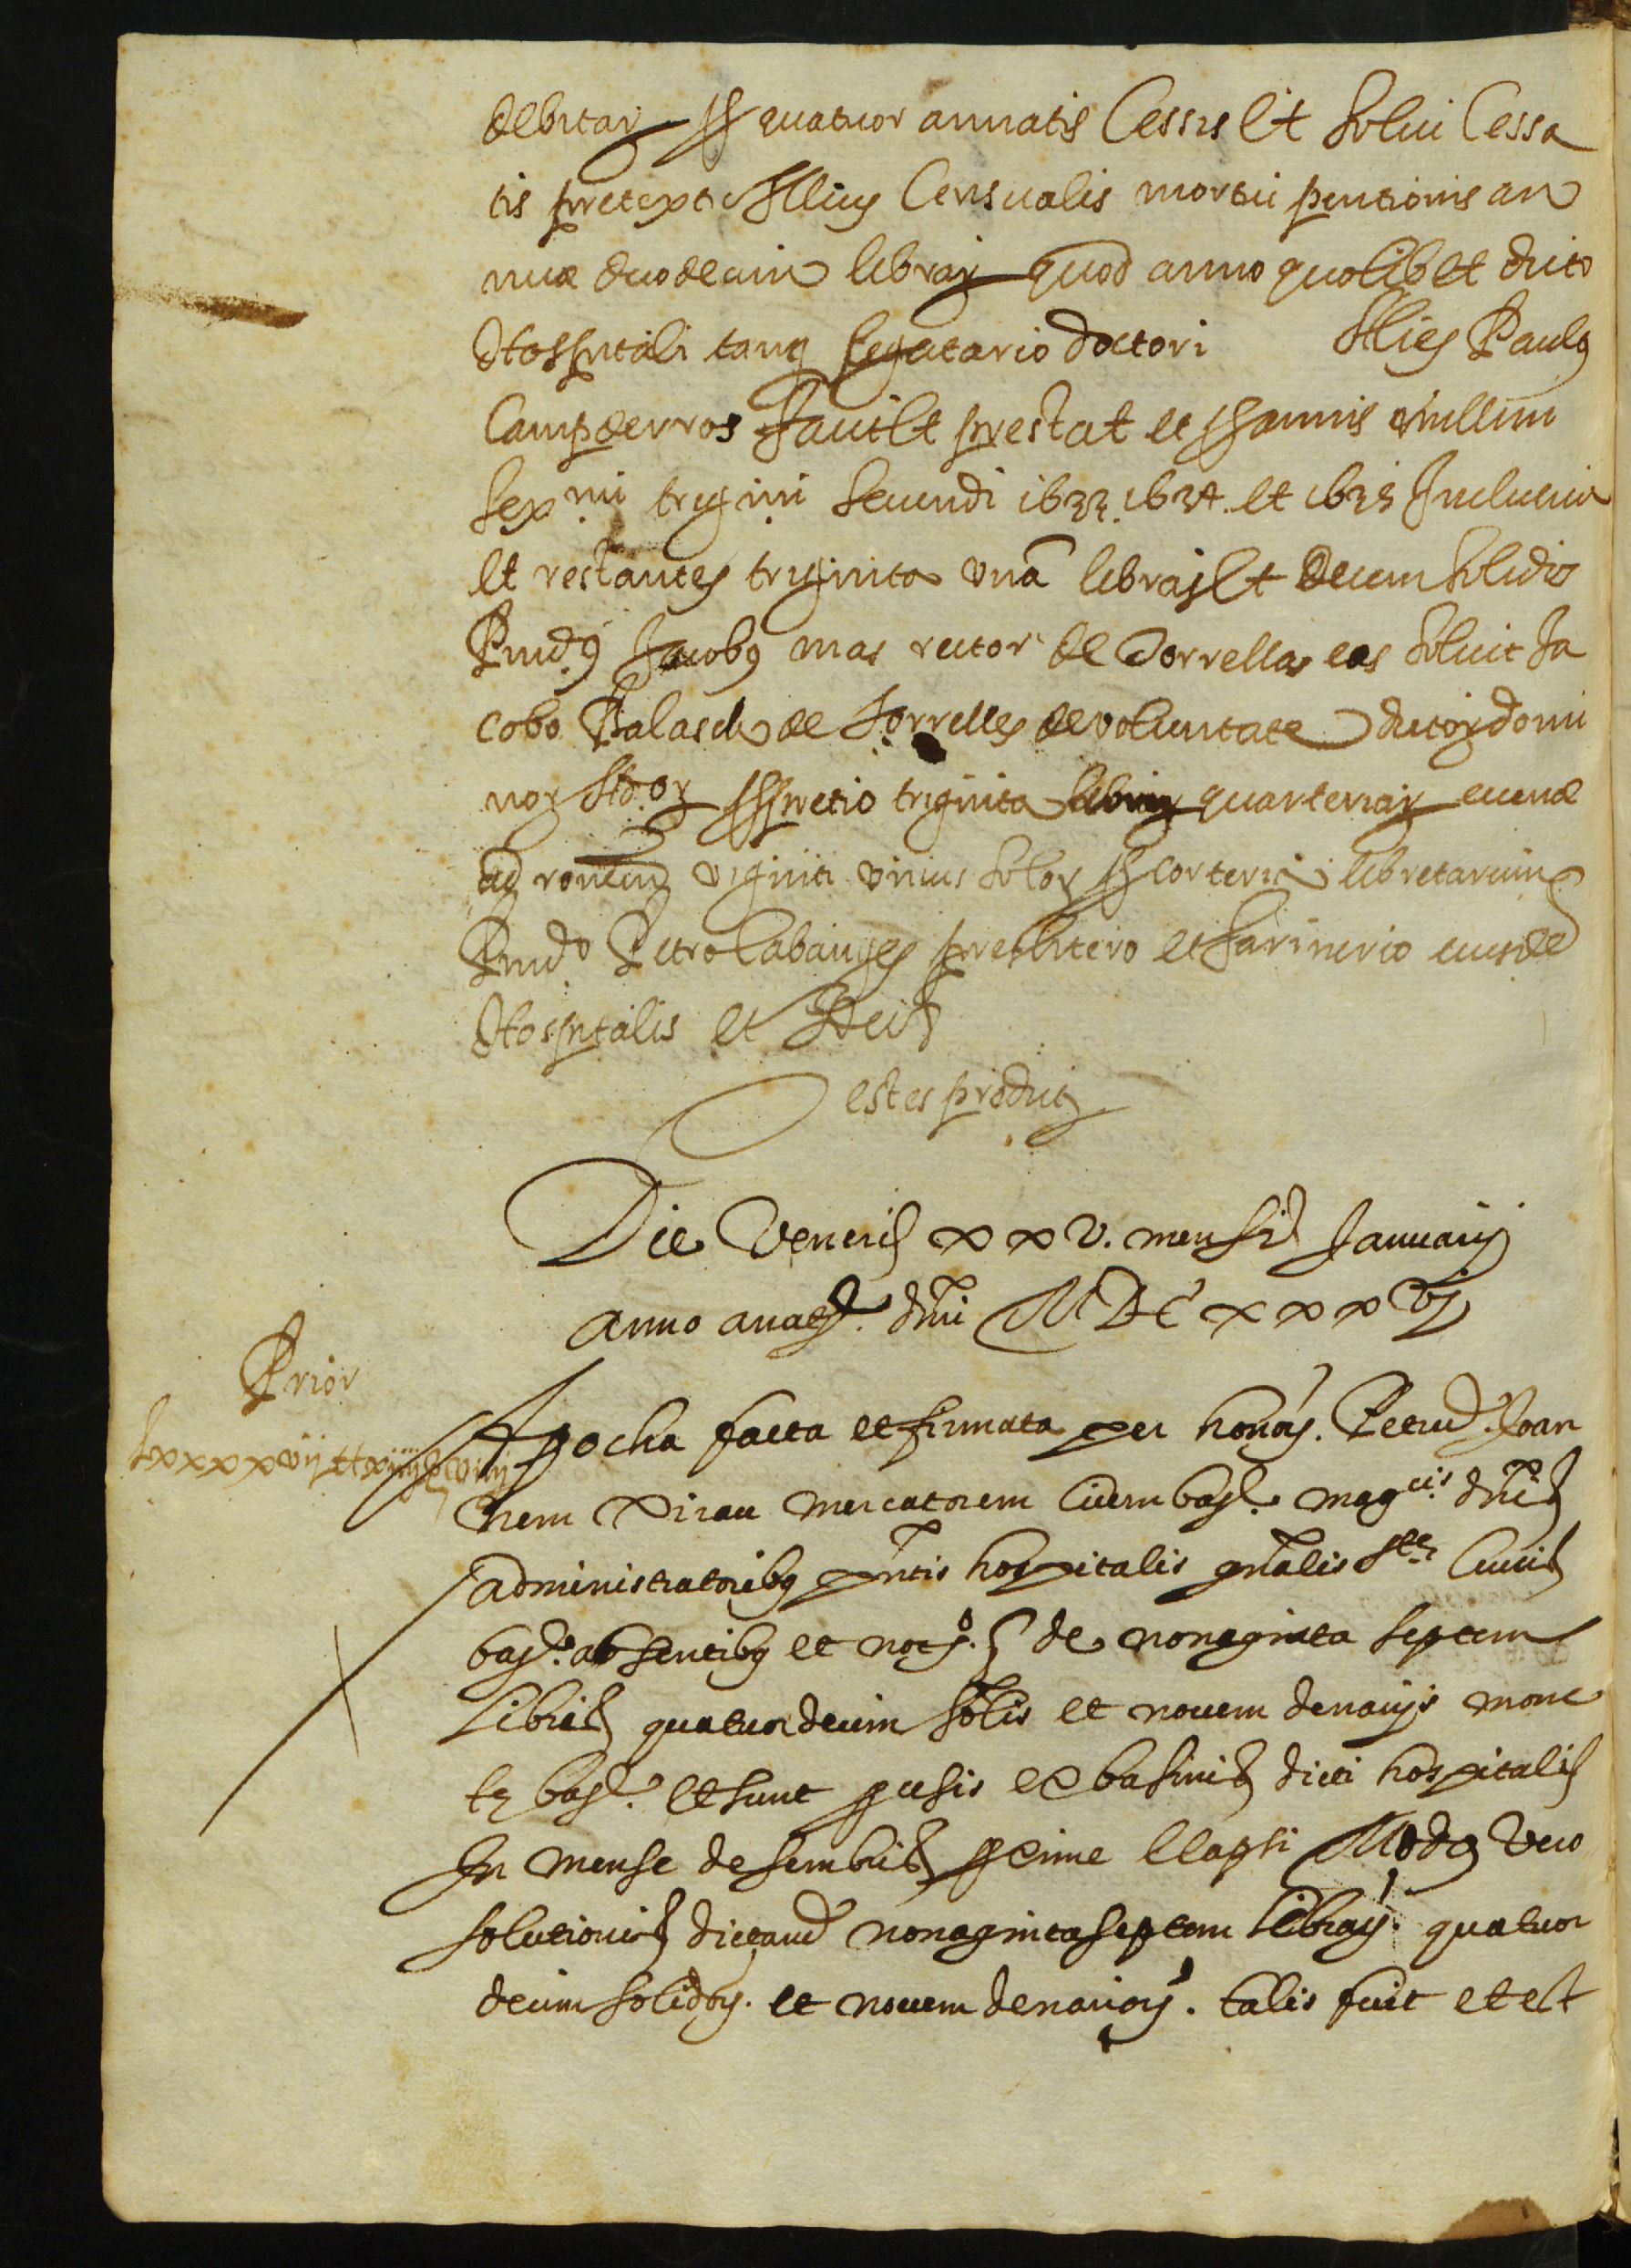 debitar p quatuor annatis Cessis et solui Cessa
tis pretextu Illius Censualis mortui pentionis an
nuæ duodecim librar quod anno quolibet dicto
Hospitali tanq legatario doctori Illies Paulg
Campderros facit et prestat et p annis millmi
sexmi trigmi secundi 1633. 1634. et 1635 Inclusiue
et restantes triginta una libras et decem solidos
Rndg Jacobg mas rector de Torrelles eas soluit Ja
cobo Balasch de Torrelles de voluntate dictor domi
nor Ador p pretio triginta quarteriar auenæ
ad ronem viginti unius solor p corteria libretarum
Rndo Petro Cabanyes presbitero et farinerio eiusde
Hospitalis et Ideo
Testes predicti
Die Veneris xxv. mensis Januarij
anno a nate. dni MDCxxxvj
Prior
Lxxxxvij ll xiiij s viiij
Apocha facta et firmata per honor. Petrud. Joan
nem Pirau mercatorem Ciuem bar. magcis dnis
administratoribg pntis hospitalis gnalis ste Cruis
bar. absentibg et noto. de nonaginta septem
Libris quatuordecim solis et nouem denarijs mone
te bar. et sunt p ex basinis dicti hospitalis
In mense desembris pxime elapsi Modg vero
solutionis dictarud nonaginta septem Librar. quatuor
decim solidor. et nouem denarior. talis fuit et est